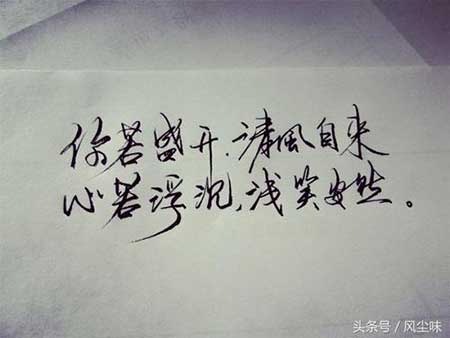 你若盛开.清风自来
心若浮沉,浅笑安然。
头条号／风尘味